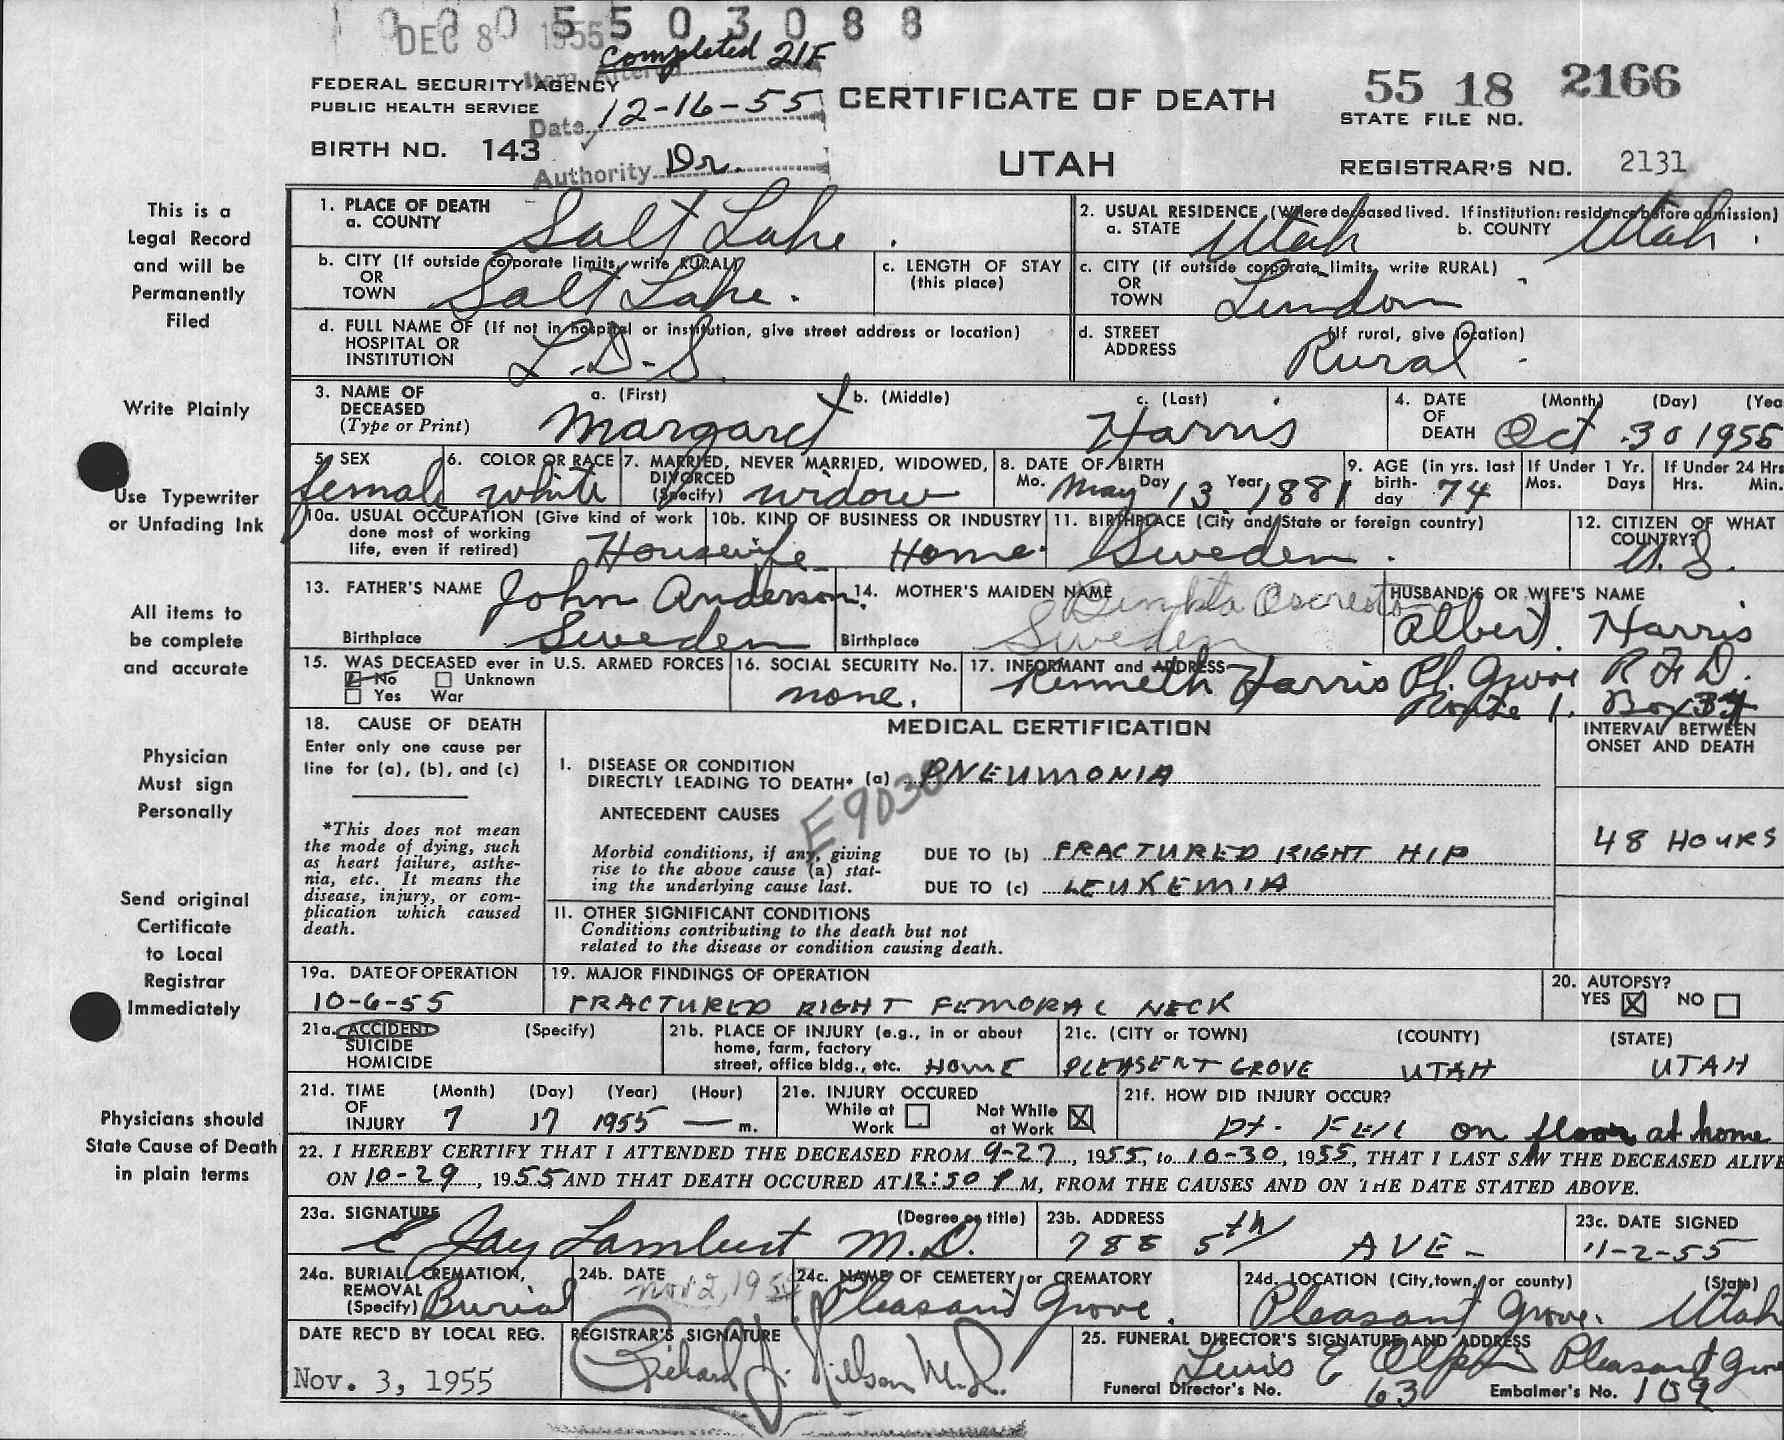 0005503088
DEC 8 1955
Completed 21F
Item Altered
FEDERAL SECURITY AGENCY
PUBLIC HEALTH SERVICE
Date 12-16-55
CERTIFICATE OF DEATH
55 18 2166
STATE FILE NO.
BIRTH NO. 143
Authority Dr.
UTAH
REGISTRAR'S NO. 2131
This is a
Legal Record
and will be
Permanently
Filed
Write Plainly
Use Typewriter
or Unfading Ink
All items to
be complete
and accurate
Physician
Must sign
Personally
Send original
Certificate
to Local
Registrar
Immediately
Physicians should
State Cause of Death
in plain terms
1. PLACE OF DEATH
a. COUNTY Salt Lake.
2. USUAL RESIDENCE (Where deceased lived. If institution: residence before admission)
a. STATE Utah b. COUNTY Utah.
b. CITY (If outside corporate limits, write RURAL)
OR
TOWN Salt Lake.
c. LENGTH OF STAY
(this place)
c. CITY (if outside corporate limits, write RURAL)
OR
TOWN Lindon
d. FULL NAME OF (If not in hospital or institution, give street address or location)
HOSPITAL OR
INSTITUTION L.D.S.
d. STREET (If rural, give location)
ADDRESS Rural
3. NAME OF
DECEASED
(Type or Print)
a. (First) b. (Middle) c. (Last)
Margaret Harris
4. DATE (Month) (Day) (Yea
OF
DEATH Oct 30 1955
5. SEX
female
6. COLOR OR RACE
white
7. MARRIED, NEVER MARRIED, WIDOWED,
DIVORCED
(Specify) widow
8. DATE OF BIRTH
Mo. May Day 13 Year 1881
9. AGE (in yrs. last
birth-
day 74
If Under 1 Yr.
Mos. Days
If Under 24 Hrs
Hrs. Min.
10a. USUAL OCCUPATION (Give kind of work
done most of working
life, even if retired) Housewife
10b. KIND OF BUSINESS OR INDUSTRY
Home.
11. BIRTHPLACE (City and State or foreign country)
Sweden.
12. CITIZEN OF WHAT
COUNTRY?
U.S.
13. FATHER'S NAME John Anderson.
Birthplace Sweden
14. MOTHER'S MAIDEN NAME
Birthplace Sweden
HUSBAND'S OR WIFE'S NAME
Albert Harris
15. WAS DECEASED ever in U.S. ARMED FORCES
No Unknown
Yes War
16. SOCIAL SECURITY No.
none.
17. INFORMANT and ADDRESS
Kenneth Harris Pl. Grove R F D.
Route 1. Box 34
18. CAUSE OF DEATH
Enter only one cause per
line for (a), (b), and (c)
*This does not mean
the mode of dying, such
as heart failure, asthe-
nia, etc. It means the
disease, injury, or com-
plication which caused
death.
MEDICAL CERTIFICATION
INTERVAL BETWEEN
ONSET AND DEATH
I. DISEASE OR CONDITION
DIRECTLY LEADING TO DEATH* (a) PNEUMONIA
E9030
ANTECEDENT CAUSES
48 HOURS
Morbid conditions, if any, giving
rise to the above cause (a) stat-
ing the underlying cause last.
DUE TO (b) FRACTURED RIGHT HIP
DUE TO (c) LEUKEMIA
II. OTHER SIGNIFICANT CONDITIONS
Conditions contributing to the death but not
related to the disease or condition causing death.
19a. DATE OF OPERATION
10-6-55
19. MAJOR FINDINGS OF OPERATION
FRACTURED RIGHT FEMORAL NECK
20. AUTOPSY?
YES NO
21a. ACCIDENT (Specify)
SUICIDE
HOMICIDE
21b. PLACE OF INJURY (e.g., in or about
home, farm, factory
street, office bldg., etc. HOME
21c. (CITY or TOWN) (COUNTY) (STATE)
PLEASENT GROVE UTAH UTAH
21d. TIME (Month) (Day) (Year) (Hour)
OF
INJURY 7 17 1955 — m.
21e. INJURY OCCURED
While at Work Not While at Work
21f. HOW DID INJURY OCCUR?
Pt. FELL on floor at home
22. I HEREBY CERTIFY THAT I ATTENDED THE DECEASED FROM 9-27, 1955, to 10-30, 1955, THAT I LAST SAW THE DECEASED ALIVE
ON 10-29, 1955 AND THAT DEATH OCCURED AT 12:50 P M, FROM THE CAUSES AND ON THE DATE STATED ABOVE.
23a. SIGNATURE (Degree or title)
E Jay Lambert M.D.
23b. ADDRESS
788 5th AVE-
23c. DATE SIGNED
11-2-55
24a. BURIAL, CREMATION,
REMOVAL
(Specify) Burial
24b. DATE
Nov 2, 1955
24c. NAME OF CEMETERY or CREMATORY
Pleasant Grove.
24d. LOCATION (City, town, or county) (State)
Pleasant Grove. Utah
DATE REC'D BY LOCAL REG.
Nov. 3, 1955
REGISTRAR'S SIGNATURE
Richard J. Nielson M.D.
25. FUNERAL DIRECTOR'S SIGNATURE AND ADDRESS
Lewis E Olpin Pleasant Grove
Funeral Director's No. 63 Embalmer's No. 109